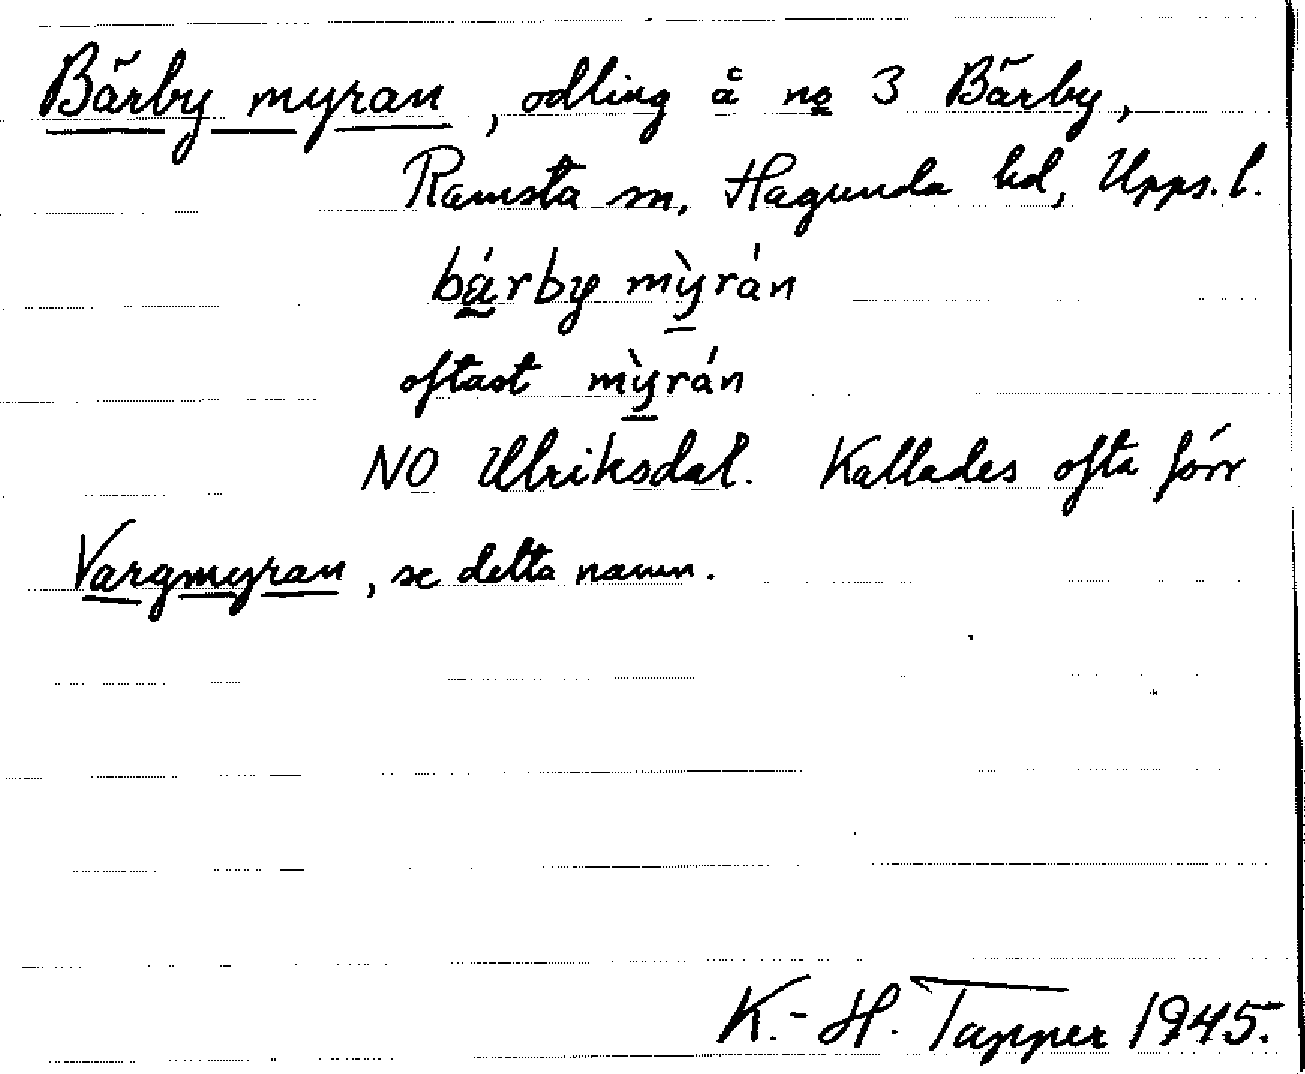 Bärby myran, odling å no 3 Bärby,
Ramsta sn, Hagunda hd, Upps. l.
bä́rby mỳrán
oftast mỳrán
NO Ulriksdal. Kallades ofta förr
Vargmyran, se detta namn.
K.-H. Tapper 1945.